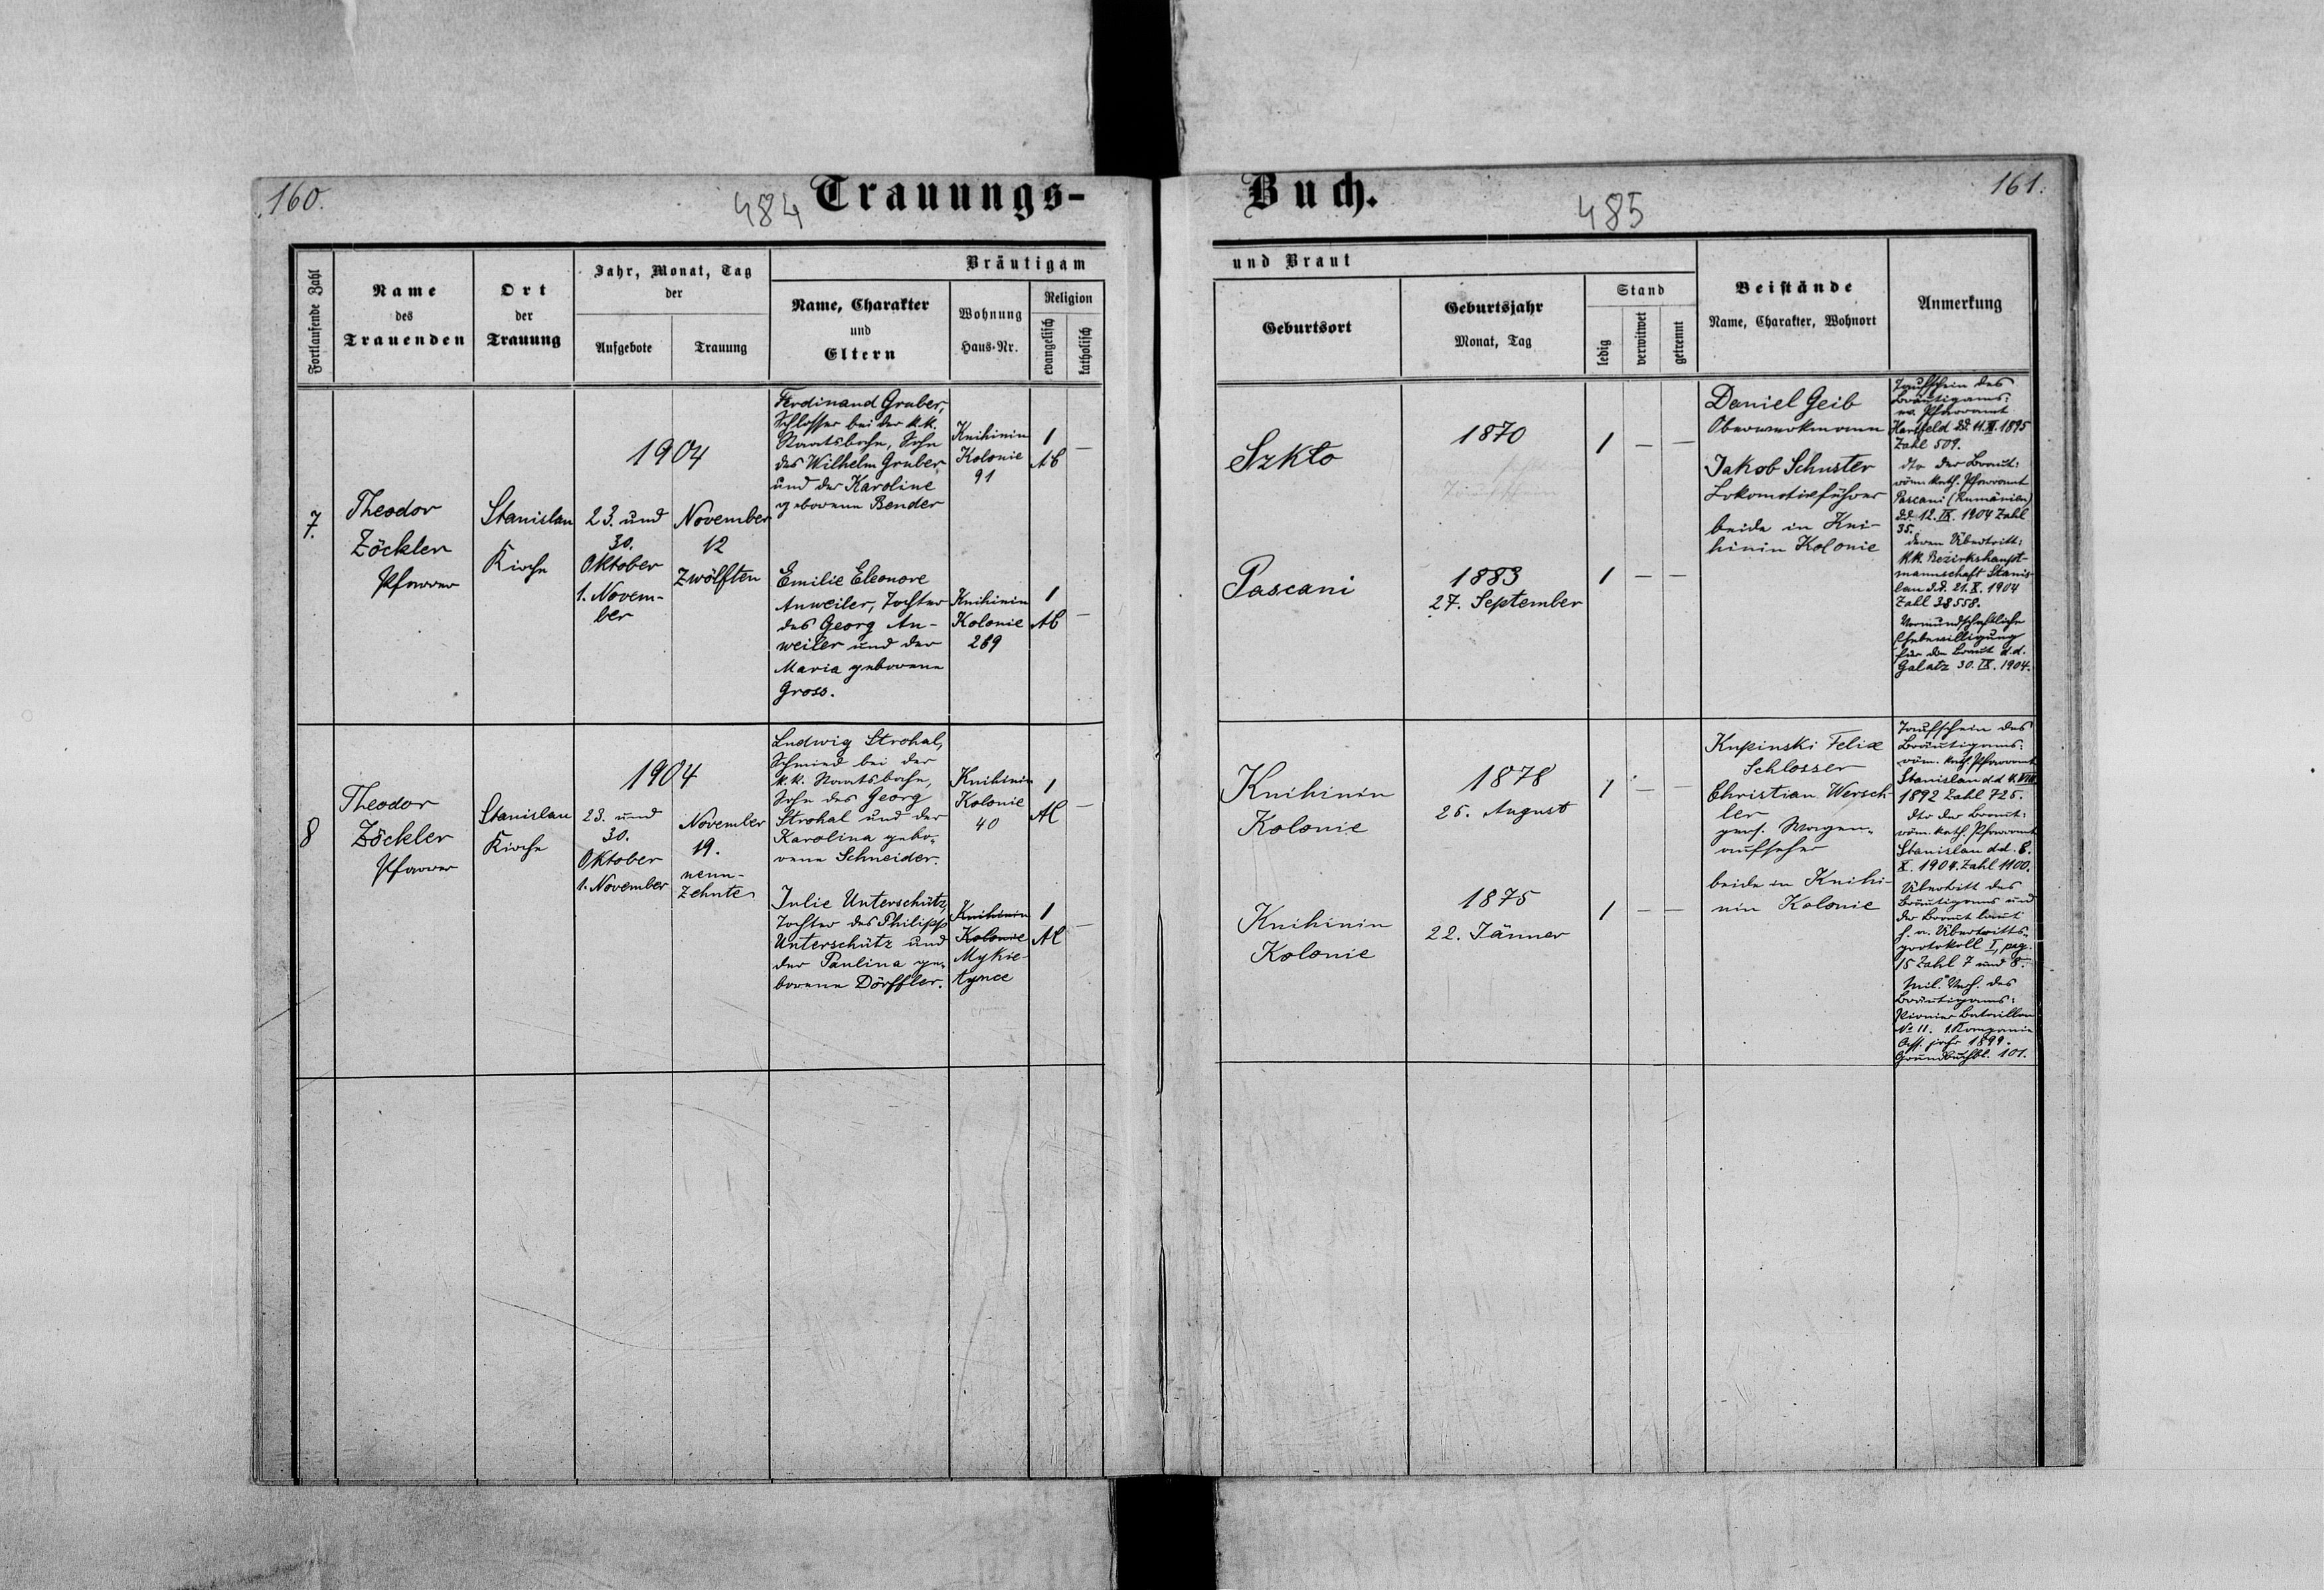 160.
484
Trauungs-
Fortlaufende Zahl
Name
des
Trauenden
Ort
der
Trauung
Jahr, Monat, Tag
der
Aufgebote
Trauung
Bräutigam
Name, Charakter
und
Eltern
Wohnung
Haus-Nr.
Religion
evangelisch
katholisch
7.
Theodor
Zöckler
Pfarrer
Stanislau
Kirche
1904
23. und
30.
Oktober
1. Novem-
ber
November
12
Zwölften
Ferdinand Gruber,
Schlosser bei der k.k.
Staatsbahn, Sohn
des Wilhelm Gruber
und der Karoline
geborene Bender
Knihinin
Kolonie
91
1
AC
—
Emilie Eleonore
Anweiler, Tochter
des Georg An-
weiler und der
Maria geborene
Gross.
Knihinin
Kolonie
269
1
AC
—
8
Theodor
Zöckler
Pfarrer
Stanislau
Kirche
1904
23. und
30.
Oktober
1. November
November
19.
neun-
zehnte
Ludwig Strohal,
Schmied bei der
k.k. Staatsbahn,
Sohn des Georg
Strohal und der
Karolina gebo-
rene Schneider.
Knihinin
Kolonie
40
1
AC
—
Julie Unterschütz,
Tochter des Philipp
Unterschütz und
der Paulina ge-
borene Dörffler.
Knihinin
Kolonie
Mykie-
tynce
1
AC
—
Buch.
485
161.
und Braut
Geburtsort
Geburtsjahr
Monat, Tag
Stand
ledig
verwitwet
getrennt
Beistände
Name, Charakter, Wohnort
Anmerkung
Szkło
1870
1 — —
Pascani
1883
27. September
1 — —
Daniel Geib
Oberwerkmann
Jakob Schuster
Lokomotivführer
beide in Kni-
hinin Kolonie
Taufschein des
Bräutigams:
ev. Pfarramt
Hartfeld dd. 11. 1895
Zahl 509.
dto der Braut:
röm. kath. Pfarramt
Pascani (Rumänien)
dd. 12. IX. 1904 Zahl
35.
deren Übertritt:
k.k. Bezirkshaupt-
mannschaft Stanis-
lau dd. 21. X. 1904
Zahl 38558.
Vormundschaftliche
Ehebewilligung
für die Braut d.d.
Galatz 30. IX. 1904.
Knihinin
Kolonie
1878
25. August
1 — —
Knihinin
Kolonie
1875
22. Jänner
1 — —
Kupinski Felix
Schlosser
Christian Wersch-
ler
pens. Wagen-
aufseher
beide in Knihi-
nin Kolonie
Taufschein des
Bräutigams:
röm. kath. Pfarramt
Stanislau dd VIII
1892 Zahl 725.
dto der Braut:
röm. kath. Pfarramt
Stanislau dd. 8.
X. 1904. Zahl 1100.
Übertritt des
Bräutigams und
der Braut laut
h. a. Übertritts-
protokoll I, pag.
15 Zahl 7 und 8.
Mil. Verh. des
Bräutigams:
Pionier Bataillon
No 11. 1. Kompanie
Ass. jahr 1899.
Grundbuchbl. 101.